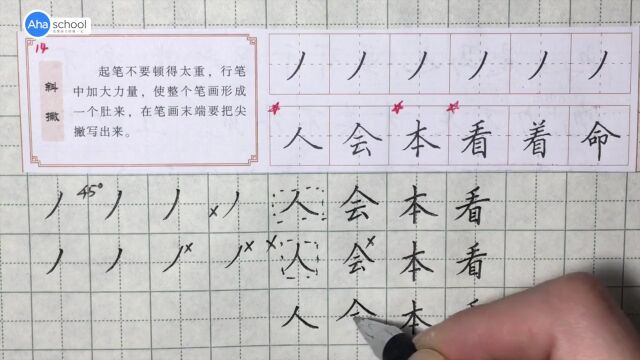 Aha school
14
斜撇
起笔不要顿得太重，行笔
中加大力量，使整个笔画形成
一个肚来，在笔画末端要把尖
撇写出来。
丿 丿 丿 丿 丿 丿
人 会 本 看 着 命
丿 45° 丿 丿 x 丿 人 会 本 看
丿 丿 丿 x 丿 x x 人 会 x 本 看
人 会 本